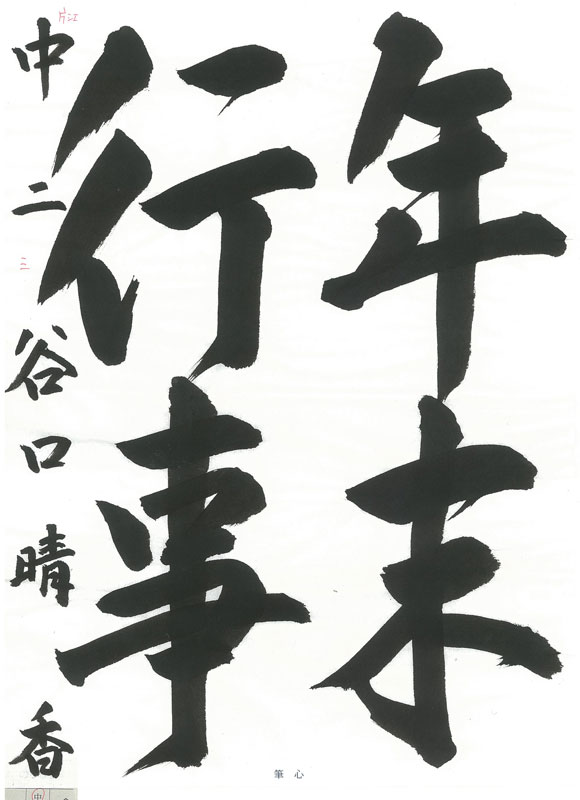 年末
行事
中二 谷口晴香
片江
三
筆心
中